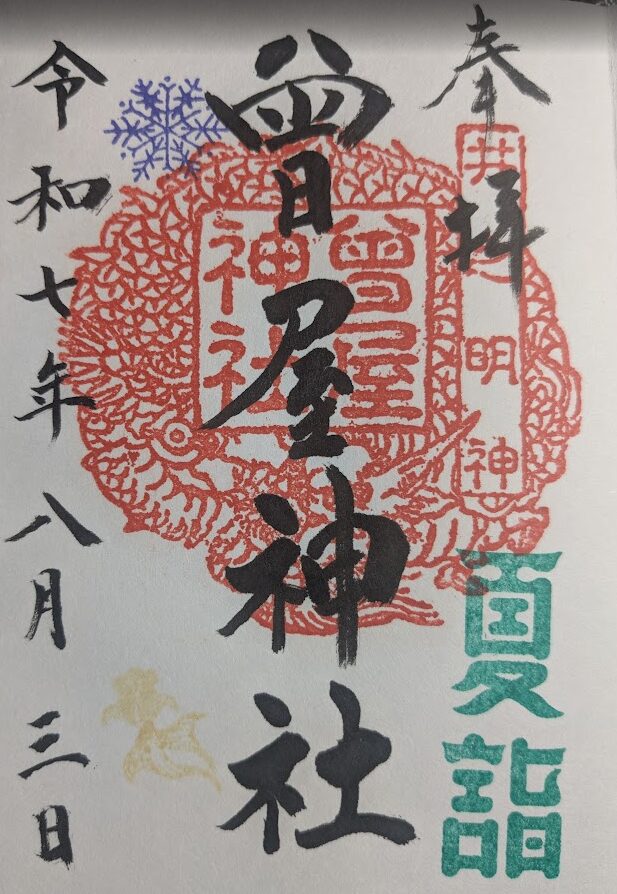 奉拝
井之明神
夏詣
曾屋神社
曾屋
神社
令和七年八月三日